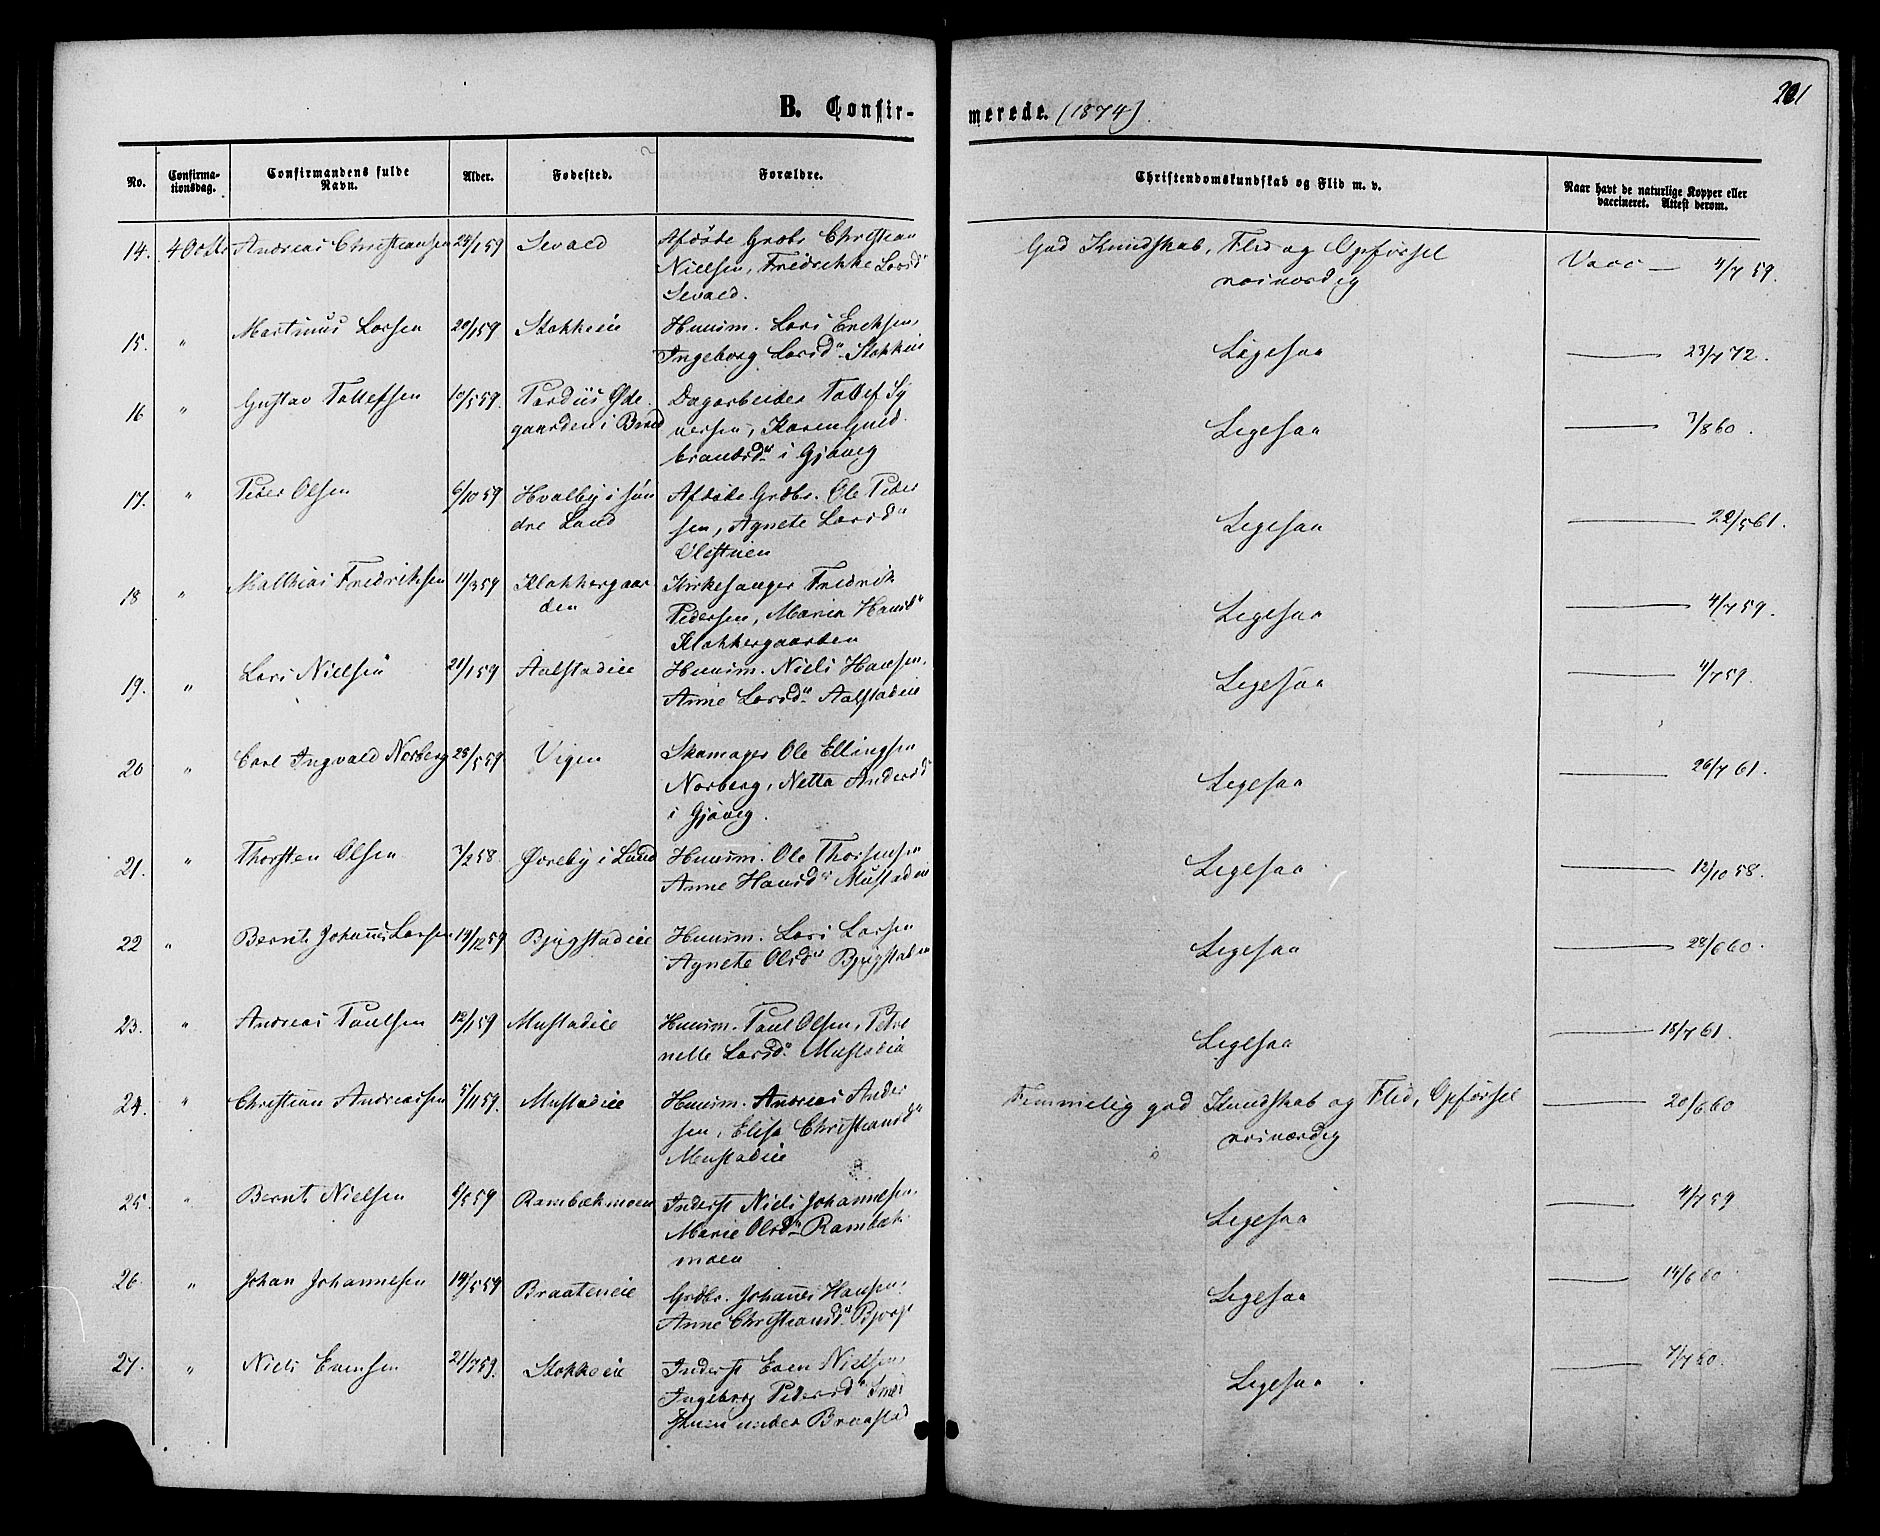 B. Confir-
merede. (1874).
201
No.
Confirma-
tionsdag.
Confirmandens fulde
Navn.
Alder.
Fødested.
Forældre.
Christendomskundskab og Flid m. v.
Naar havt de naturlige Kopper eller
vaccineret. Attest derom.
14. 4 Andreas Christiansen 24/1 59 Sevald Afdøde Grdbr Christian
Nielsen, Fredrikke Larsd
Sevald.
God Kundskab, Flid og Opførsel
Vacc — 4/7 59.
15. " Martinus Larsen 20/1 59 Stokkeie Huusm. Lars Ericksen,
Ingeborg Larsd. Stokkeie
Ligesaa — 23/7 72.
16 " Gustav Tollefsen 10/5 59. Pardiis Øde-
gaarden i Brød Dagarbeider Tollef Sy
versen, Karen Guld
brandsd. i Gjøvig
Ligesaa — 7/8 60.
17. " Peder Olsen 6/10 59 Hvalby i søn
dre Land Afdøde Grdbr. Ole Peder
sen, Agnete Larsd
Olestuen
Ligesaa — 22/5 61.
18 " Mathias Fredriksen 11/3 59 Klokkergaar
den Kirkesanger Fredrik
Pedersen, Maria Hansd
Klokkergaarden
Ligesaa — 4/7 59.
19. " Lars Nielsen 21/1 59 Aalstadeie Huusm. Niels Hansen,
Anne Larsd. Aalstadeie
Ligesaa — 4/7 59.
20 " Carl Ingvald Norberg 28/5 59 Vigen Skomager Ole Ellingsen
Norberg, Netta Andersd
i Gjøvig.
Ligesaa — 26/7 61.
21. " Thorsten Olsen 7/2 58. Øvreby i Land Huusm. Ole Thorstensen
Anne Hansd. Mustadeie
Ligesaa — 12/10 58.
22 " Bernt Johannes Larsen 14/12 59 Bjugstadeie Huusm. Lars Larsen
Agnete Olsd. Bjugstadeie
Ligesaa — 28/6 60.
23. " Andreas Paulsen 12/1 59 Mustadeie Huusm. Paul Olsen, Petro
nelle Larsd. Mustadeie
Ligesaa — 18/7 61.
24. " Christian Andreassen 5/11 59. Mustadeie Huusm. Andreas Ander
sen, Elise Christiansd
Mustadeie
Temmelig god Kundskab og Flid, Opførsel
— 20/6 60
25. " Bernt Nielsen 8/5 59 Rambækmoen Inderst Niels Johannesen,
Marie Olsd. Rambæk-
moen
Ligesaa — 4/7 59
26. " Johan Johannesen 14/5 59 Braateneie Grdbr. Johannes Hansen,
Anne Christiansd.
Ligesaa — 14/6 60.
27. " Niels Evensen 21/7 59. Stokkeeie Inderst Even Nielsen,
Ingeborg Pedersd
under Braastad
Ligesaa — 7/7 60.